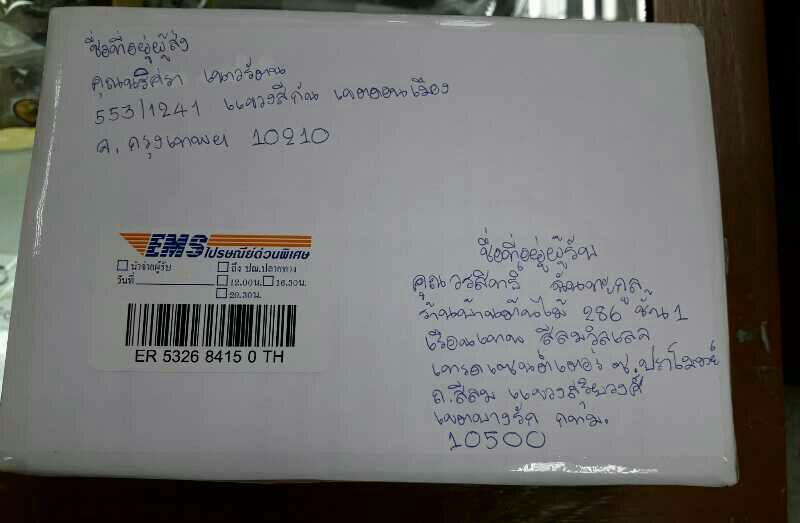 ชื่อที่อยู่ผู้ส่ง
คุณนริศรา เนาวรัตน
553/1241 แขวงสีกัน เขตดอนเมือง
จ. กรุงเทพฯ 10210
EMS ไปรษณีย์ด่วนพิเศษ
นำจ่ายผู้รับ ถึง ปณ.ปลายทาง
วันที่ 12.00น. 16.30น.
20.30น.
ER 5326 8415 0 TH
ชื่อที่อยู่ผู้รับ
คุณวรสิทธิ์
ร้านบ้านต้นไม้ 286 ชั้น 1
เรือนเทพ สีลมวิลเลจ
เทรดเซนต์เตอร์ ซ.ปราโมทย์
ถ.สีลม แขวงสุริยวงศ์
เขตบางรัก กทม.
10500